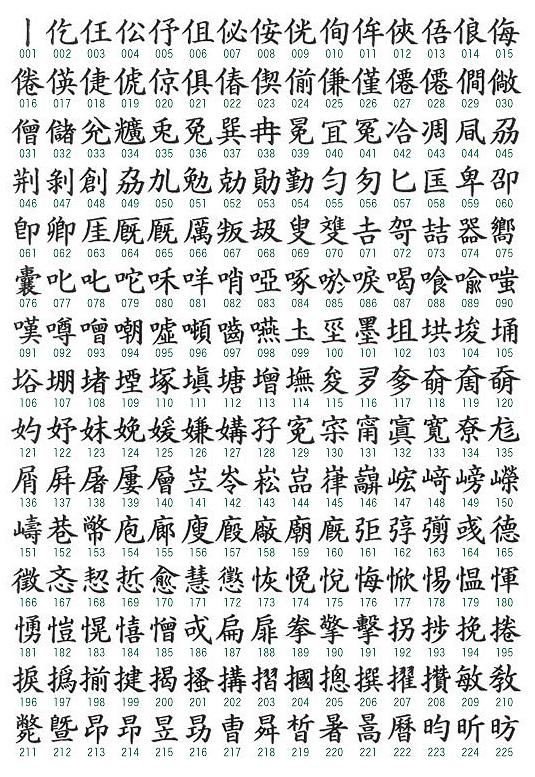 丨 仡 仼 伀 伃 伹 佖 侒 侊 侚 侔 俠 俉 俍 侮
001 002 003 004 005 006 007 008 009 010 011 012 013 014 015
倦 偀 倢 俿 倞 俱 偆 偰 偂 傔 僅 僊 僲 僩 僘
016 017 018 019 020 021 022 023 024 025 026 027 028 029 030
僧 儲 兊 兤 兎 兔 巽 冉 冕 冝 冤 冾 凋 凨 刕
031 032 033 034 035 036 037 038 039 040 041 042 043 044 045
剃 剰 創 劦 劜 勉 勀 勛 勤 匀 匇 匕 匤 卑 卲
046 047 048 049 050 051 052 053 054 055 056 057 058 059 060
卽 卿 厓 厩 厩 厲 叛 叝 叟 雙 𠮷 哿 喆 器 嚮
061 062 063 064 065 066 067 068 069 070 071 072 073 074 075
囊 叱 𠮟 咜 咊 咩 哨 啞 啄 唹 唳 喝 喰 喩 嗤
076 077 078 079 080 081 082 083 084 085 086 087 088 089 090
嘆 噂 噌 嘲 嘘 噸 嚙 嚥 圡 坙 墨 坥 垬 埈 埇
091 092 093 094 095 096 097 098 099 100 101 102 103 104 105
㙊 堋 堵 堙 塚 塡 塘 增 墲 夋 夛 奓 奝 奝 奣
106 107 108 109 110 111 112 113 114 115 116 117 118 119 120
妁 妤 妺 娩 媛 嫌 媾 孖 寃 寀 甯 寘 寬 尞 尨
121 122 123 124 125 126 127 128 129 130 131 132 133 134 135
屑 屛 屠 屢 層 岦 岺 崧 嵓 嵂 嵭 嵤 﨑 嵭 嶸
136 137 138 139 140 141 142 143 144 145 146 147 148 149 150
嶹 巷 幣 庖 廊 廋 廏 廠 廟 廐 弡 弴 彅 彧 德
151 152 153 154 155 156 157 158 159 160 161 162 163 164 165
徵 忞 恝 悊 愈 慧 懲 恢 悗 悅 悔 惞 惕 慍 惲
166 167 168 169 170 171 172 173 174 175 176 177 178 179 180
愑 愷 愰 憘 憎 戓 扁 扉 拳 擎 擊 拐 捗 挽 捲
181 182 183 184 185 186 187 188 189 190 191 192 193 194 195
捩 撝 揃 揵 揭 搔 搆 摺 摑 摠 撰 擢 攢 敏 敎
196 197 198 199 200 201 202 203 204 205 206 207 208 209 210
斃 曁 昂 昻 昱 昮 曺 曻 晳 暑 暠 曆 昀 昕 昉
211 212 213 214 215 216 217 218 219 220 221 222 223 224 225